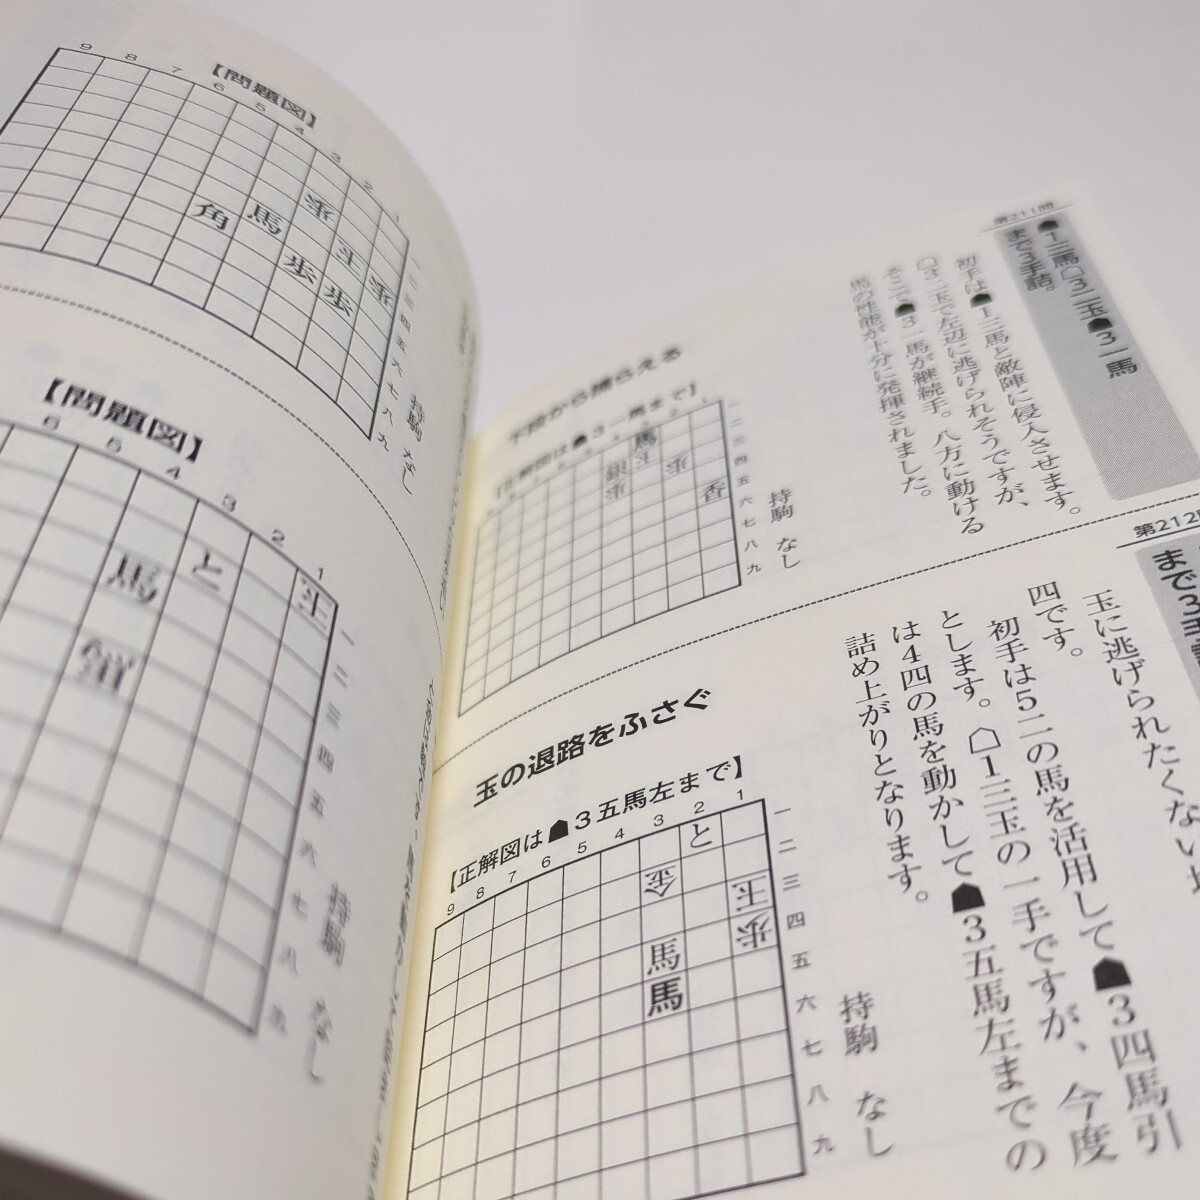 第211問
☗1三馬☖3二玉☗3一馬
まで3手詰。
初手は☗1三馬と敵陣に侵入させます。
☖3二玉で左辺に逃げられそうですが、
そこで☗3一馬が継続手。八方に動ける
馬の性能が十分に発揮されました。
下段から捕らえる
【正解図は☗3一馬まで】
馬
玉
銀
香
一
二
三
四
五
六
七
八
九
持駒 なし
第212問
まで3手詰
玉に逃げられたくない
四です。
初手は5二の馬を活用して☗3四馬引
とします。☖1三玉の一手ですが、今度
は4四の馬を動かして☗3五馬左までの
詰め上がりとなります。
玉の退路をふさぐ
【正解図は☗3五馬左まで】
9 8 7 6 5 4 3 2 1
と
金
玉
歩
馬
馬
一
二
三
四
五
六
七
八
九
持駒 なし
【問題図】
9 8 7 6 5 4 3 2 1
角
馬
歩
玉
歩
一
二
三
四
五
六
七
八
九
持駒 なし
【問題図】
6 5 4 3 2 1
玉
と
馬
一
二
三
四
五
六
七
八
九
持駒 なし